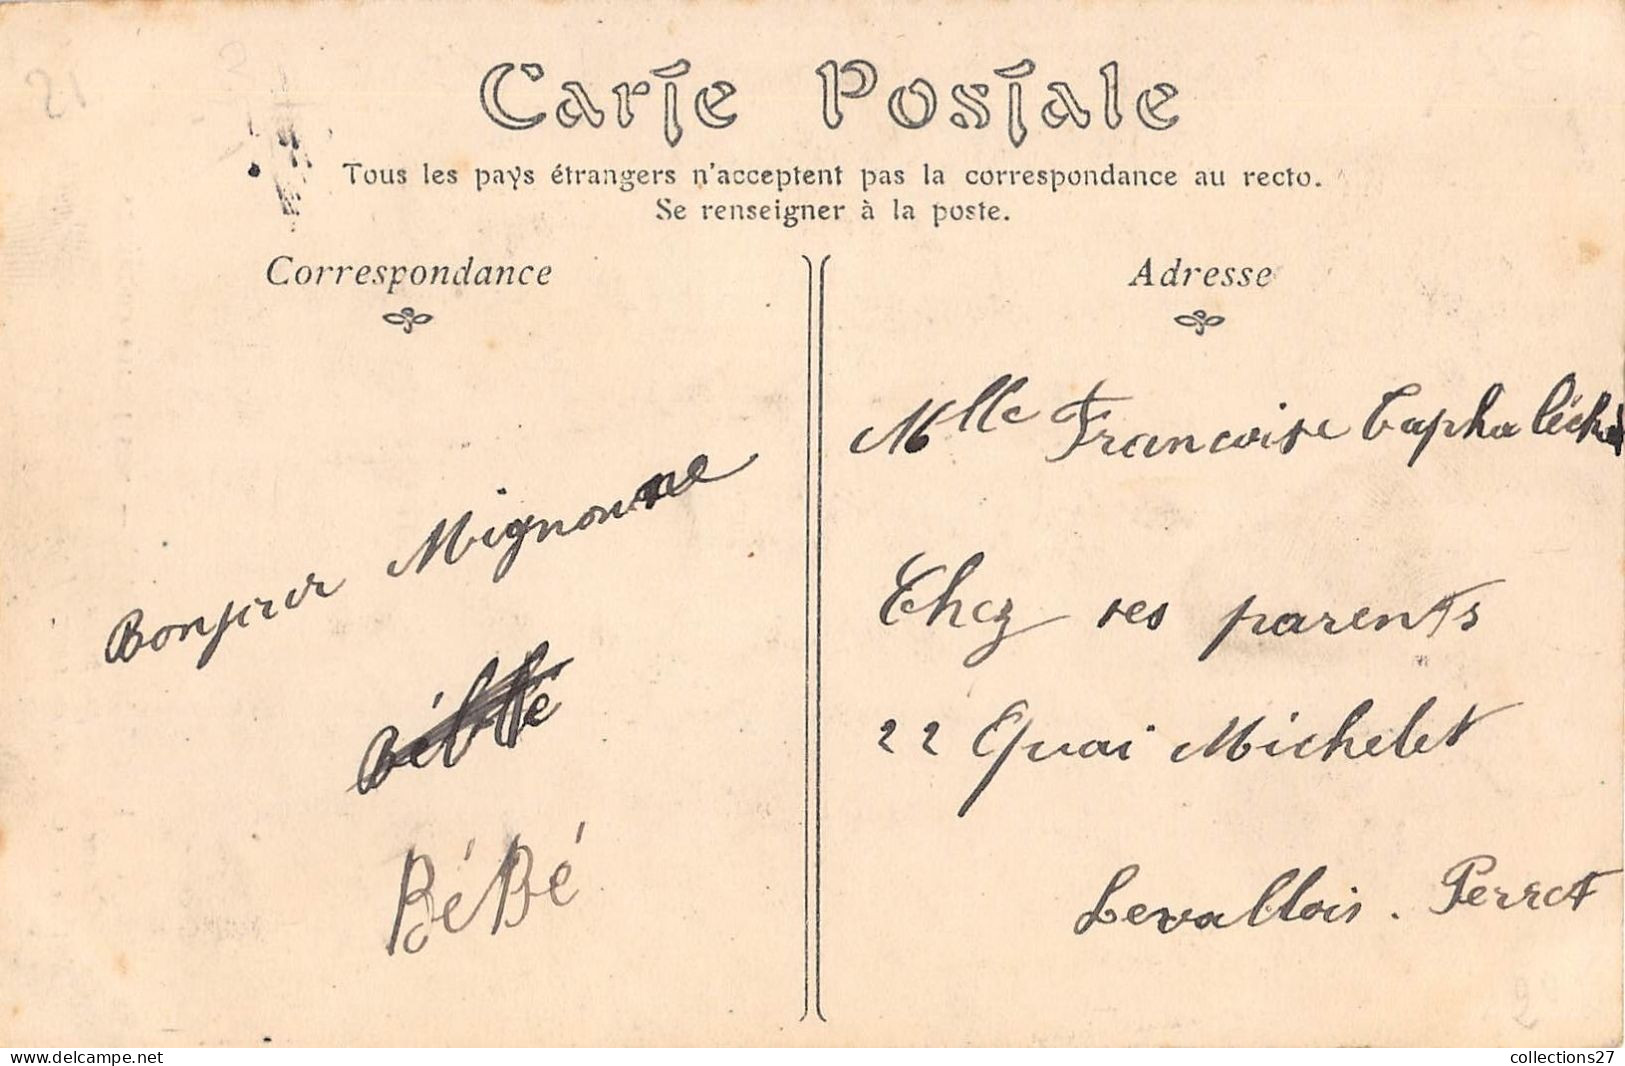 21
Carte Postale
Tous les pays étrangers n'acceptent pas la correspondance au recto.
Se renseigner à la poste.
Correspondance
Bonjour Mignonne
BéBé
Adresse
Mlle Francoise
Chez ses parents
22 Quai Michelet
Levallois. Perret
collections27